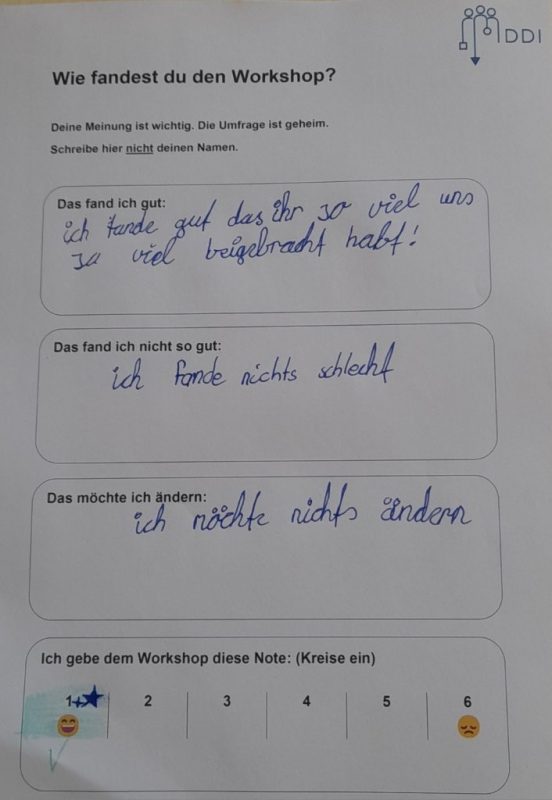 DDI
Wie fandest du den Workshop?
Deine Meinung ist wichtig. Die Umfrage ist geheim.
Schreibe hier nicht deinen Namen.
Das fand ich gut:
ich fande gut das ihr so viel uns
so viel beigebracht habt!
Das fand ich nicht so gut:
ich fande nichts schlecht
Das möchte ich ändern:
ich möchte nichts ändern
Ich gebe dem Workshop diese Note: (Kreise ein)
1+ 2 3 4 5 6